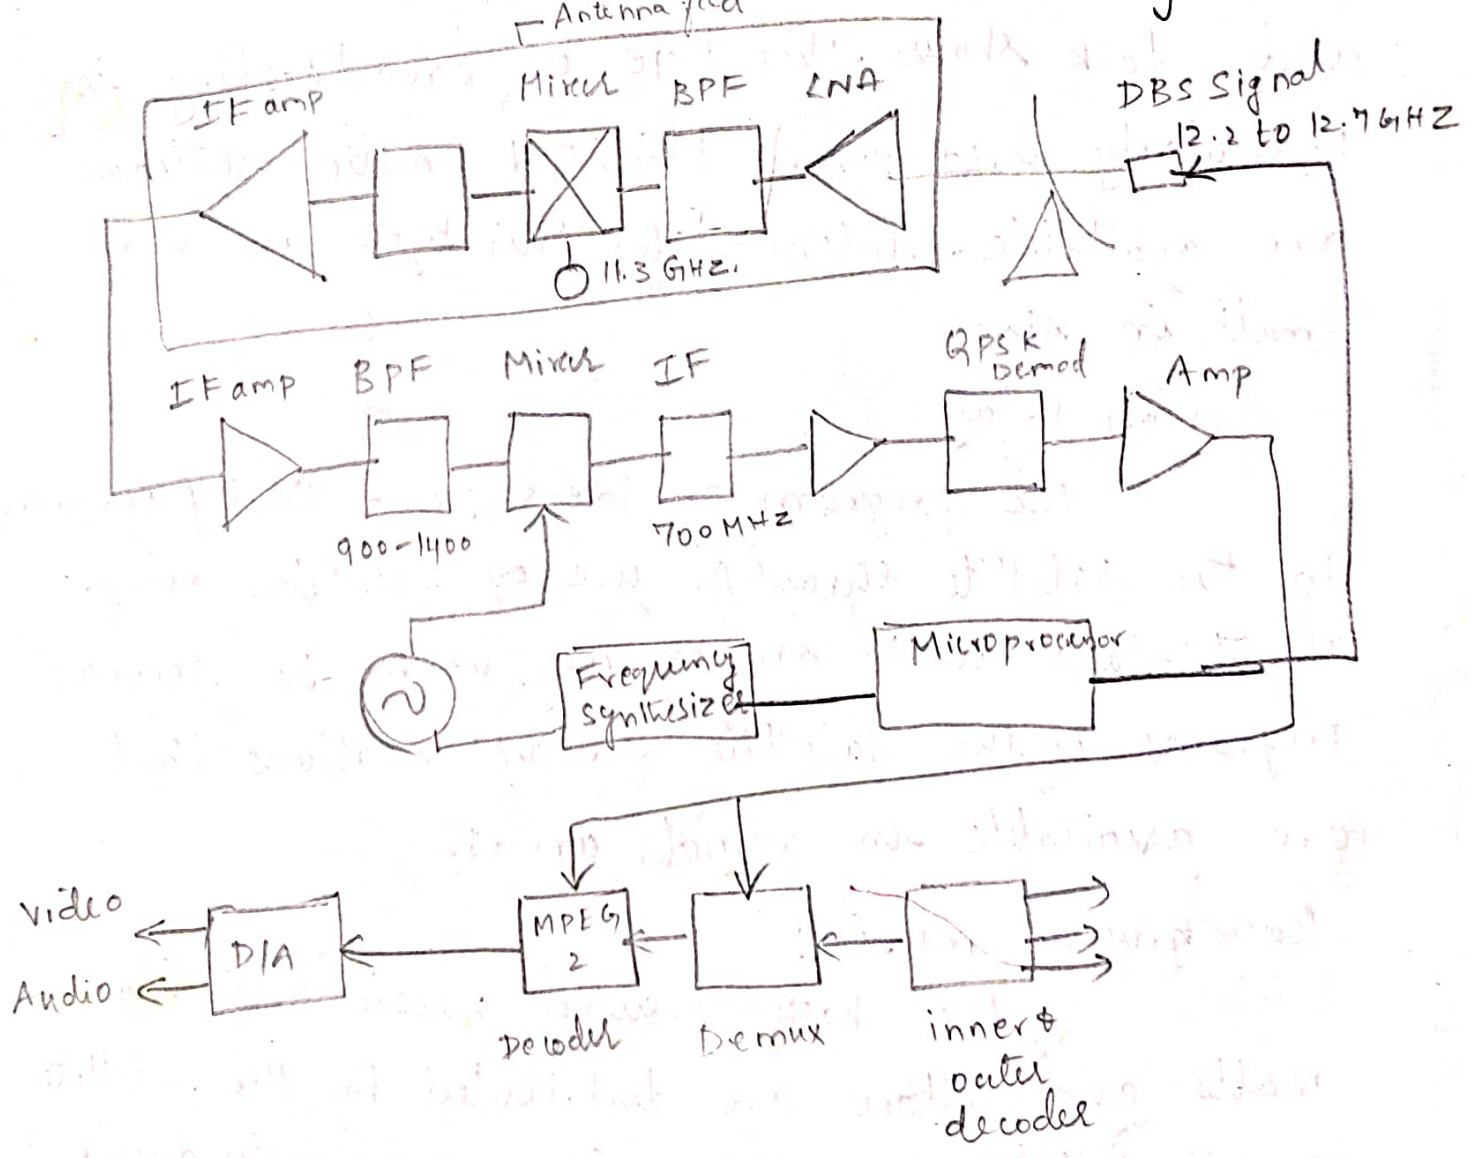 Antenna feed
IF amp
Mixer
BPF
LNA
DBS Signal
12.2 to 12.7 GHZ
11.3 GHZ.
IF amp
BPF
Mixer
IF
QPSK
Demod
Amp
900-1400
700 MHZ
Frequency
synthesizer
Microprocessor
video
Audio
D/A
MPEG
2
Decoder
Demux
inner &
outer
decoder